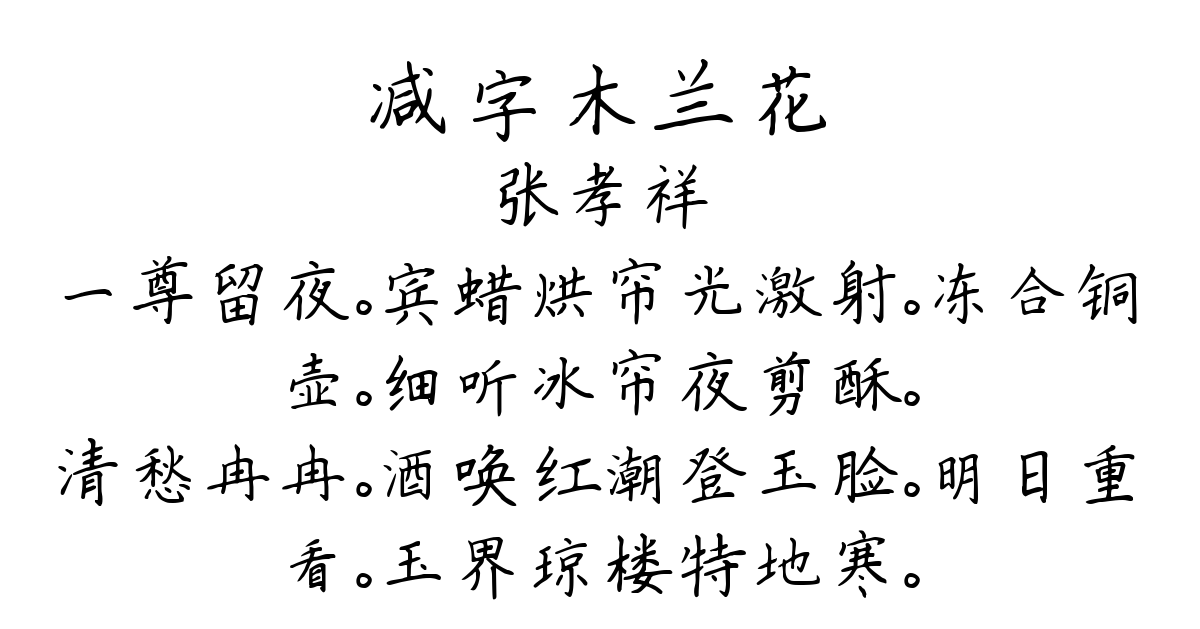 减字木兰花
张孝祥
一尊留夜。宾蜡烘帘光激射。冻合铜
壶。细听冰帘夜剪酥。
清愁冉冉。酒唤红潮登玉脸。明日重
看。玉界琼楼特地寒。